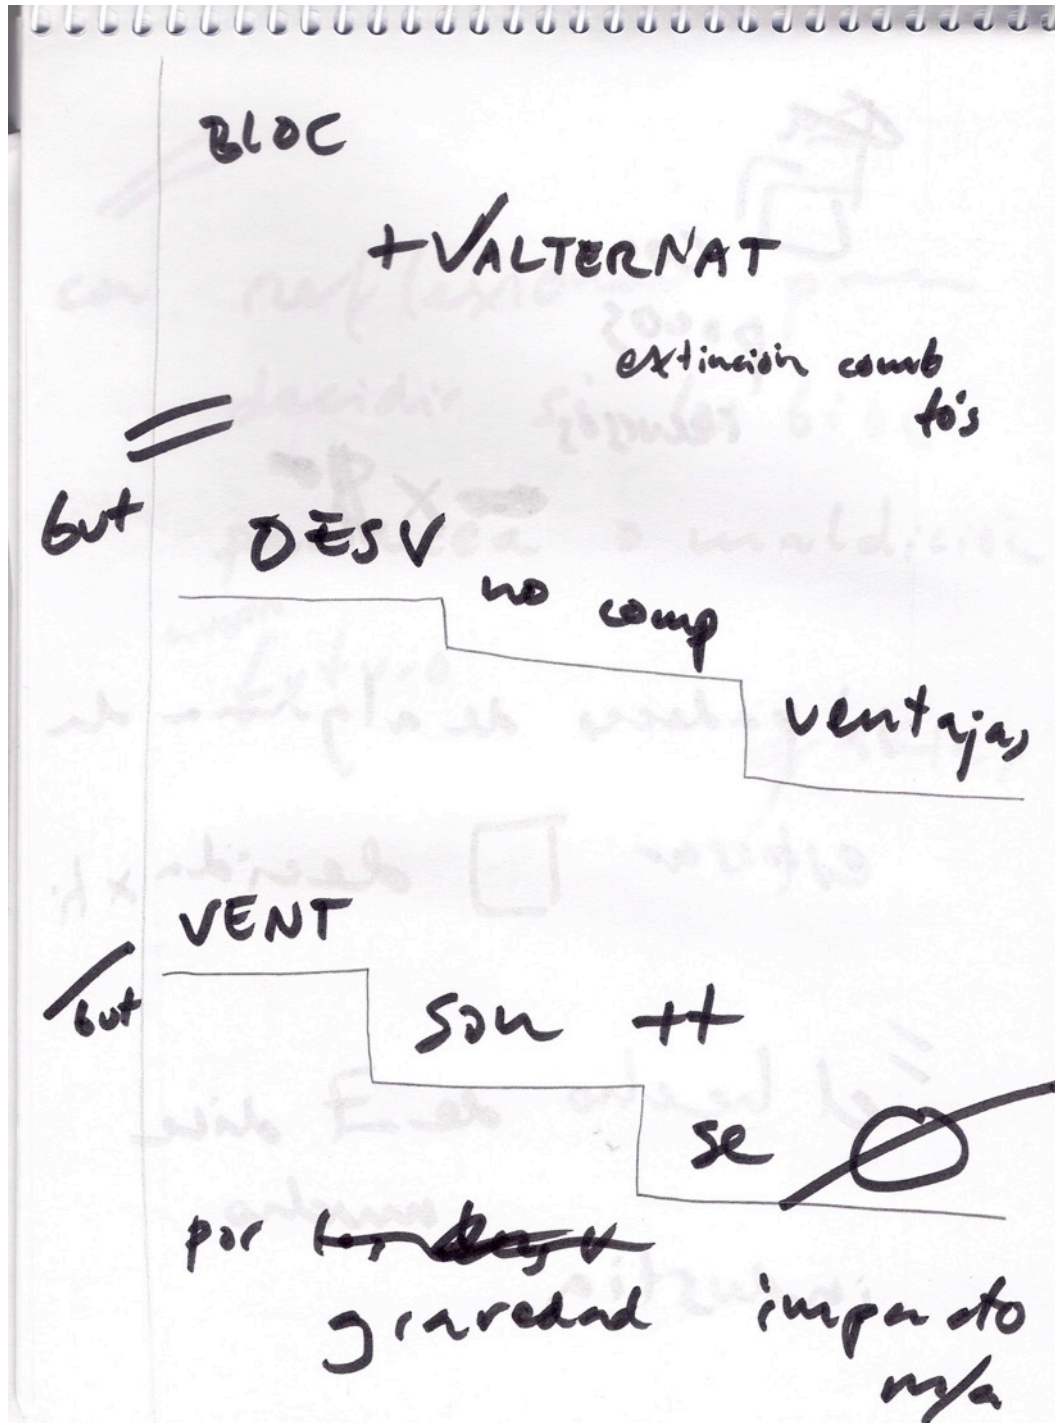 BLOC
+VALTERNAT
extinción comb
fós
but
DESV
no comp
ventajas
VENT
but
son ++
se
por
gravedad impacto
m/a